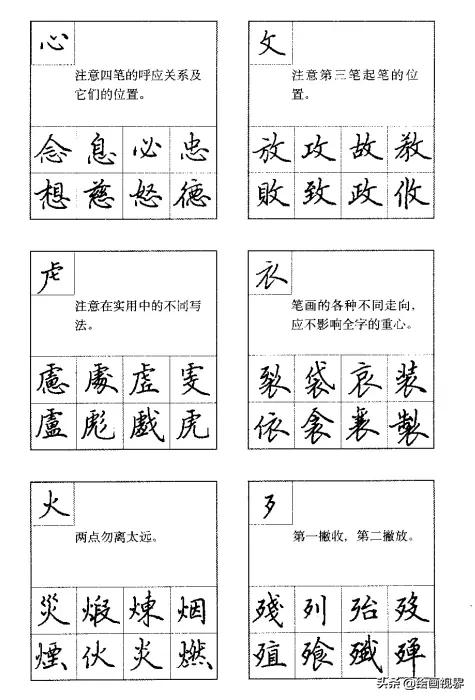 心
注意四笔的呼应关系及
它们的位置。
念息必忠
想慈怒德
攵
注意第三笔起笔的位
置。
放攻故教
敗致政攸
虍
注意在实用中的不同写
法。
慮處虚
盧彪戲虎
衣
笔画的各种不同走向，
应不影响全字的重心。
裂袋哀装
依衾襄製
火
两点勿离太远。
災煅煉烟
煙伙炎燃
歹
第一撇收，第二撇放。
殘列殆歿
殖飧殲殫
头条@绘画视界